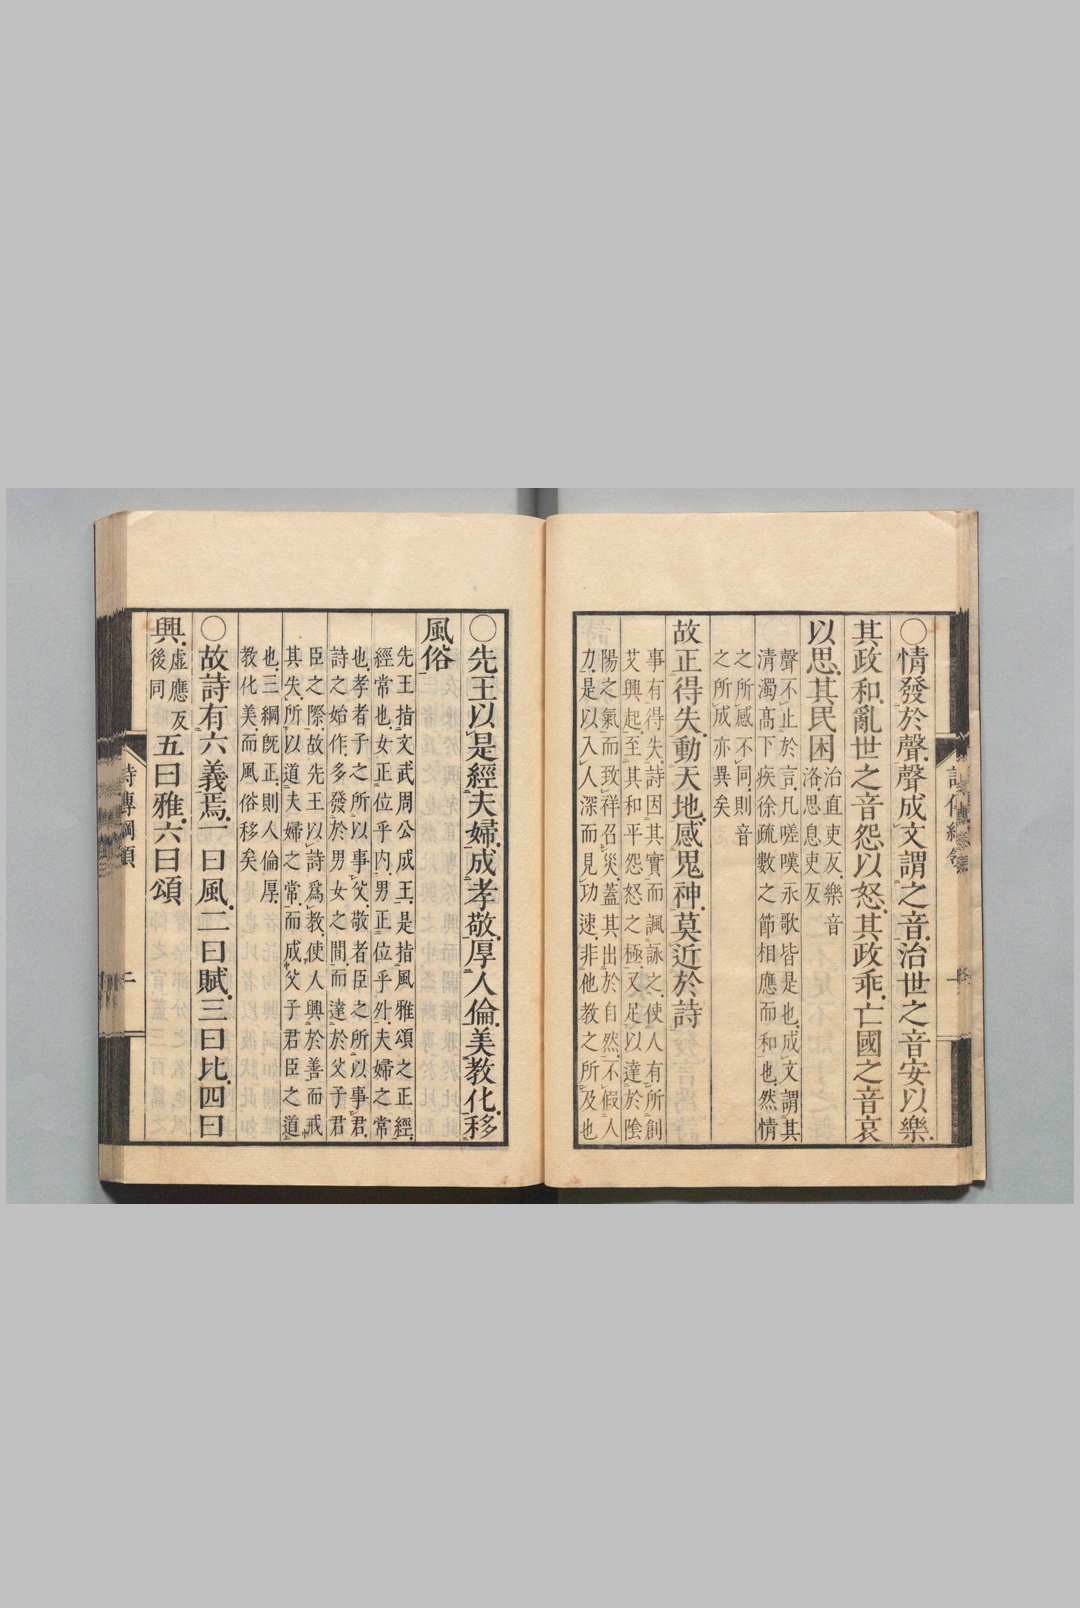 ○情發於聲聲成文謂之音治世之音安以樂
其政和亂世之音怨以怒其政乖亡國之音哀
以思其民困治直吏反樂音
洛思息吏反
聲不止於言凡嗟嘆永歌皆是也成文謂其
清濁高下疾徐疏數之節相應而和也然情
之所感不同則音
之所成亦異矣
故正得失動天地感鬼神莫近於詩
事有得失詩因其實而諷詠之使人有所創
艾興起至其和平怨怒之極又足以達於陰
陽之氣而致祥召災蓋其出於自然不假人
力是以入人深而見功速非他教之所及也
○先王以是經夫婦成孝敬厚人倫美教化移
風俗
先王指文武周公成王是指風雅頌之正經
經常也女正位乎內男正位乎外夫婦之常
也孝者子之所以事父敬者臣之所以事君
詩之始作多發於男女之間而達於父子君
臣之際故先王以詩爲教使人興於善而戒
其失所以道夫婦之常而成父子君臣之道
也三綱既正則人倫厚
教化美而風俗移矣
○故詩有六義焉一曰風二曰賦三曰比四曰
興虛應反
後同五曰雅六曰頌
詩傳綱領
二